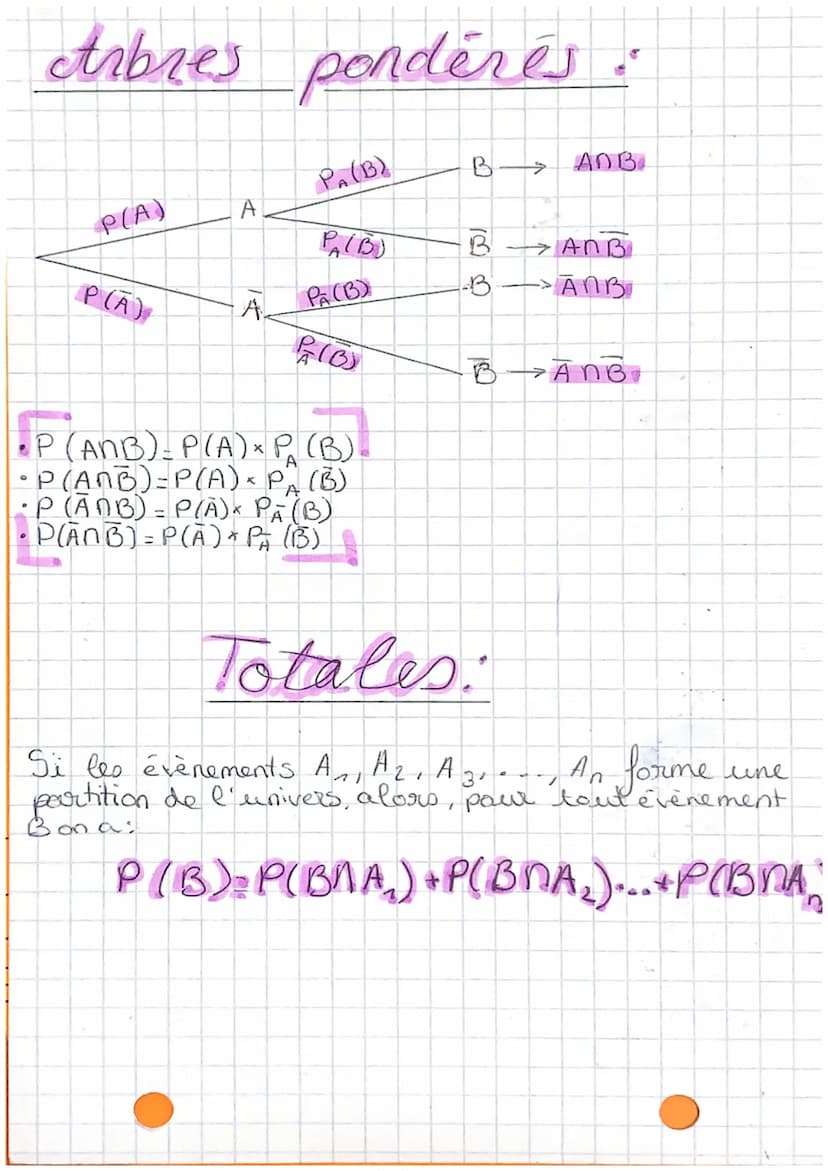 Arbres pondérés :
P_A(B) B → A∩B
P(A) A
P_A(B̅) B̅ → A∩B̅
P(A̅) A̅ P_A̅(B) B → A̅∩B
P_A̅(B̅) B̅ → A̅∩B̅
• P(A∩B) = P(A) × P_A(B)
• P(A∩B̅) = P(A) × P_A(B̅)
• P(A̅∩B) = P(A̅) × P_A̅(B)
• P(A̅∩B̅) = P(A̅) × P_A̅(B̅)
Totales :
Si les évènements A₁, A₂, A₃, ...., Aₙ forme une
partition de l'univers, alors, pour tout évènement
B on a :
P(B) = P(B∩A₁) + P(B∩A₂) ... + P(B∩Aₙ